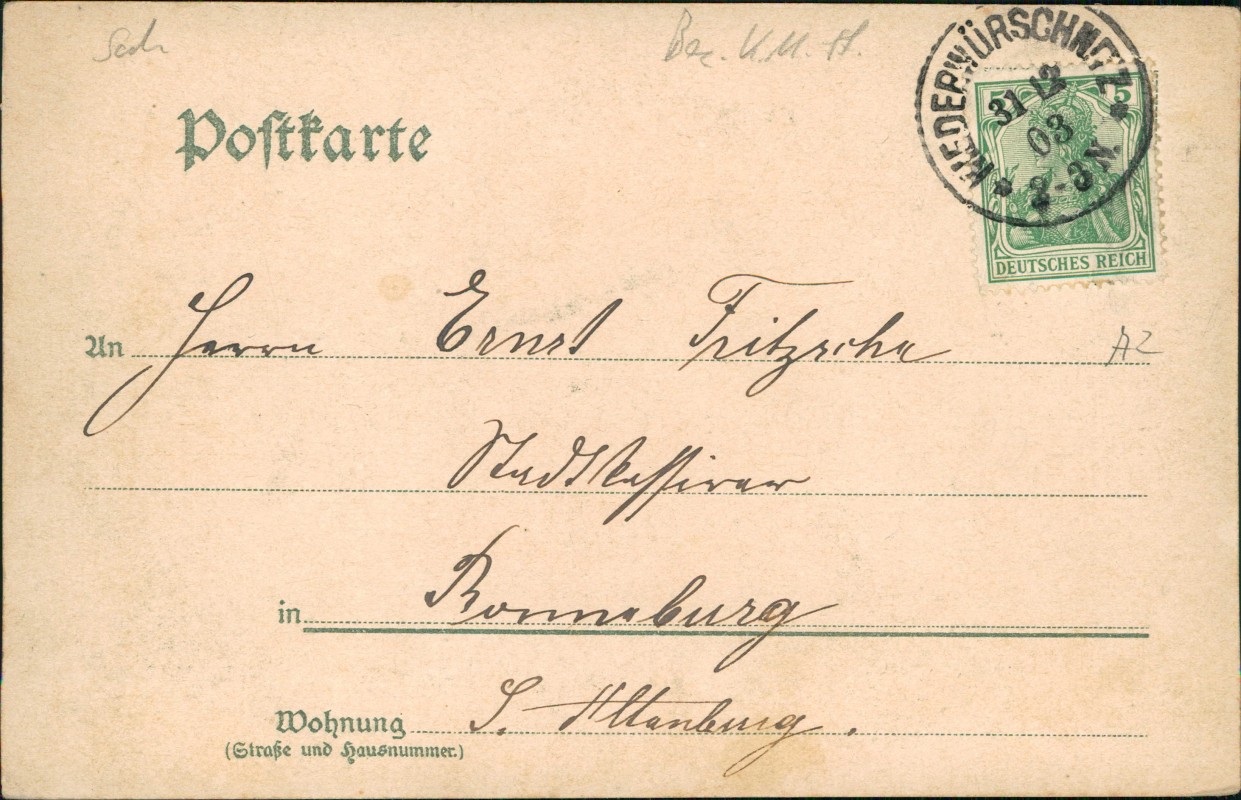 Postkarte
NIEDERWÜRSCHNITZ
31 12
03
2-3 N.
5 5
DEUTSCHES REICH
An Herrn Ernst Fritzsche
A2
Stadtkassirer
in Ronneburg
Wohnung S. Altenburg.
(Straße und Hausnummer.)